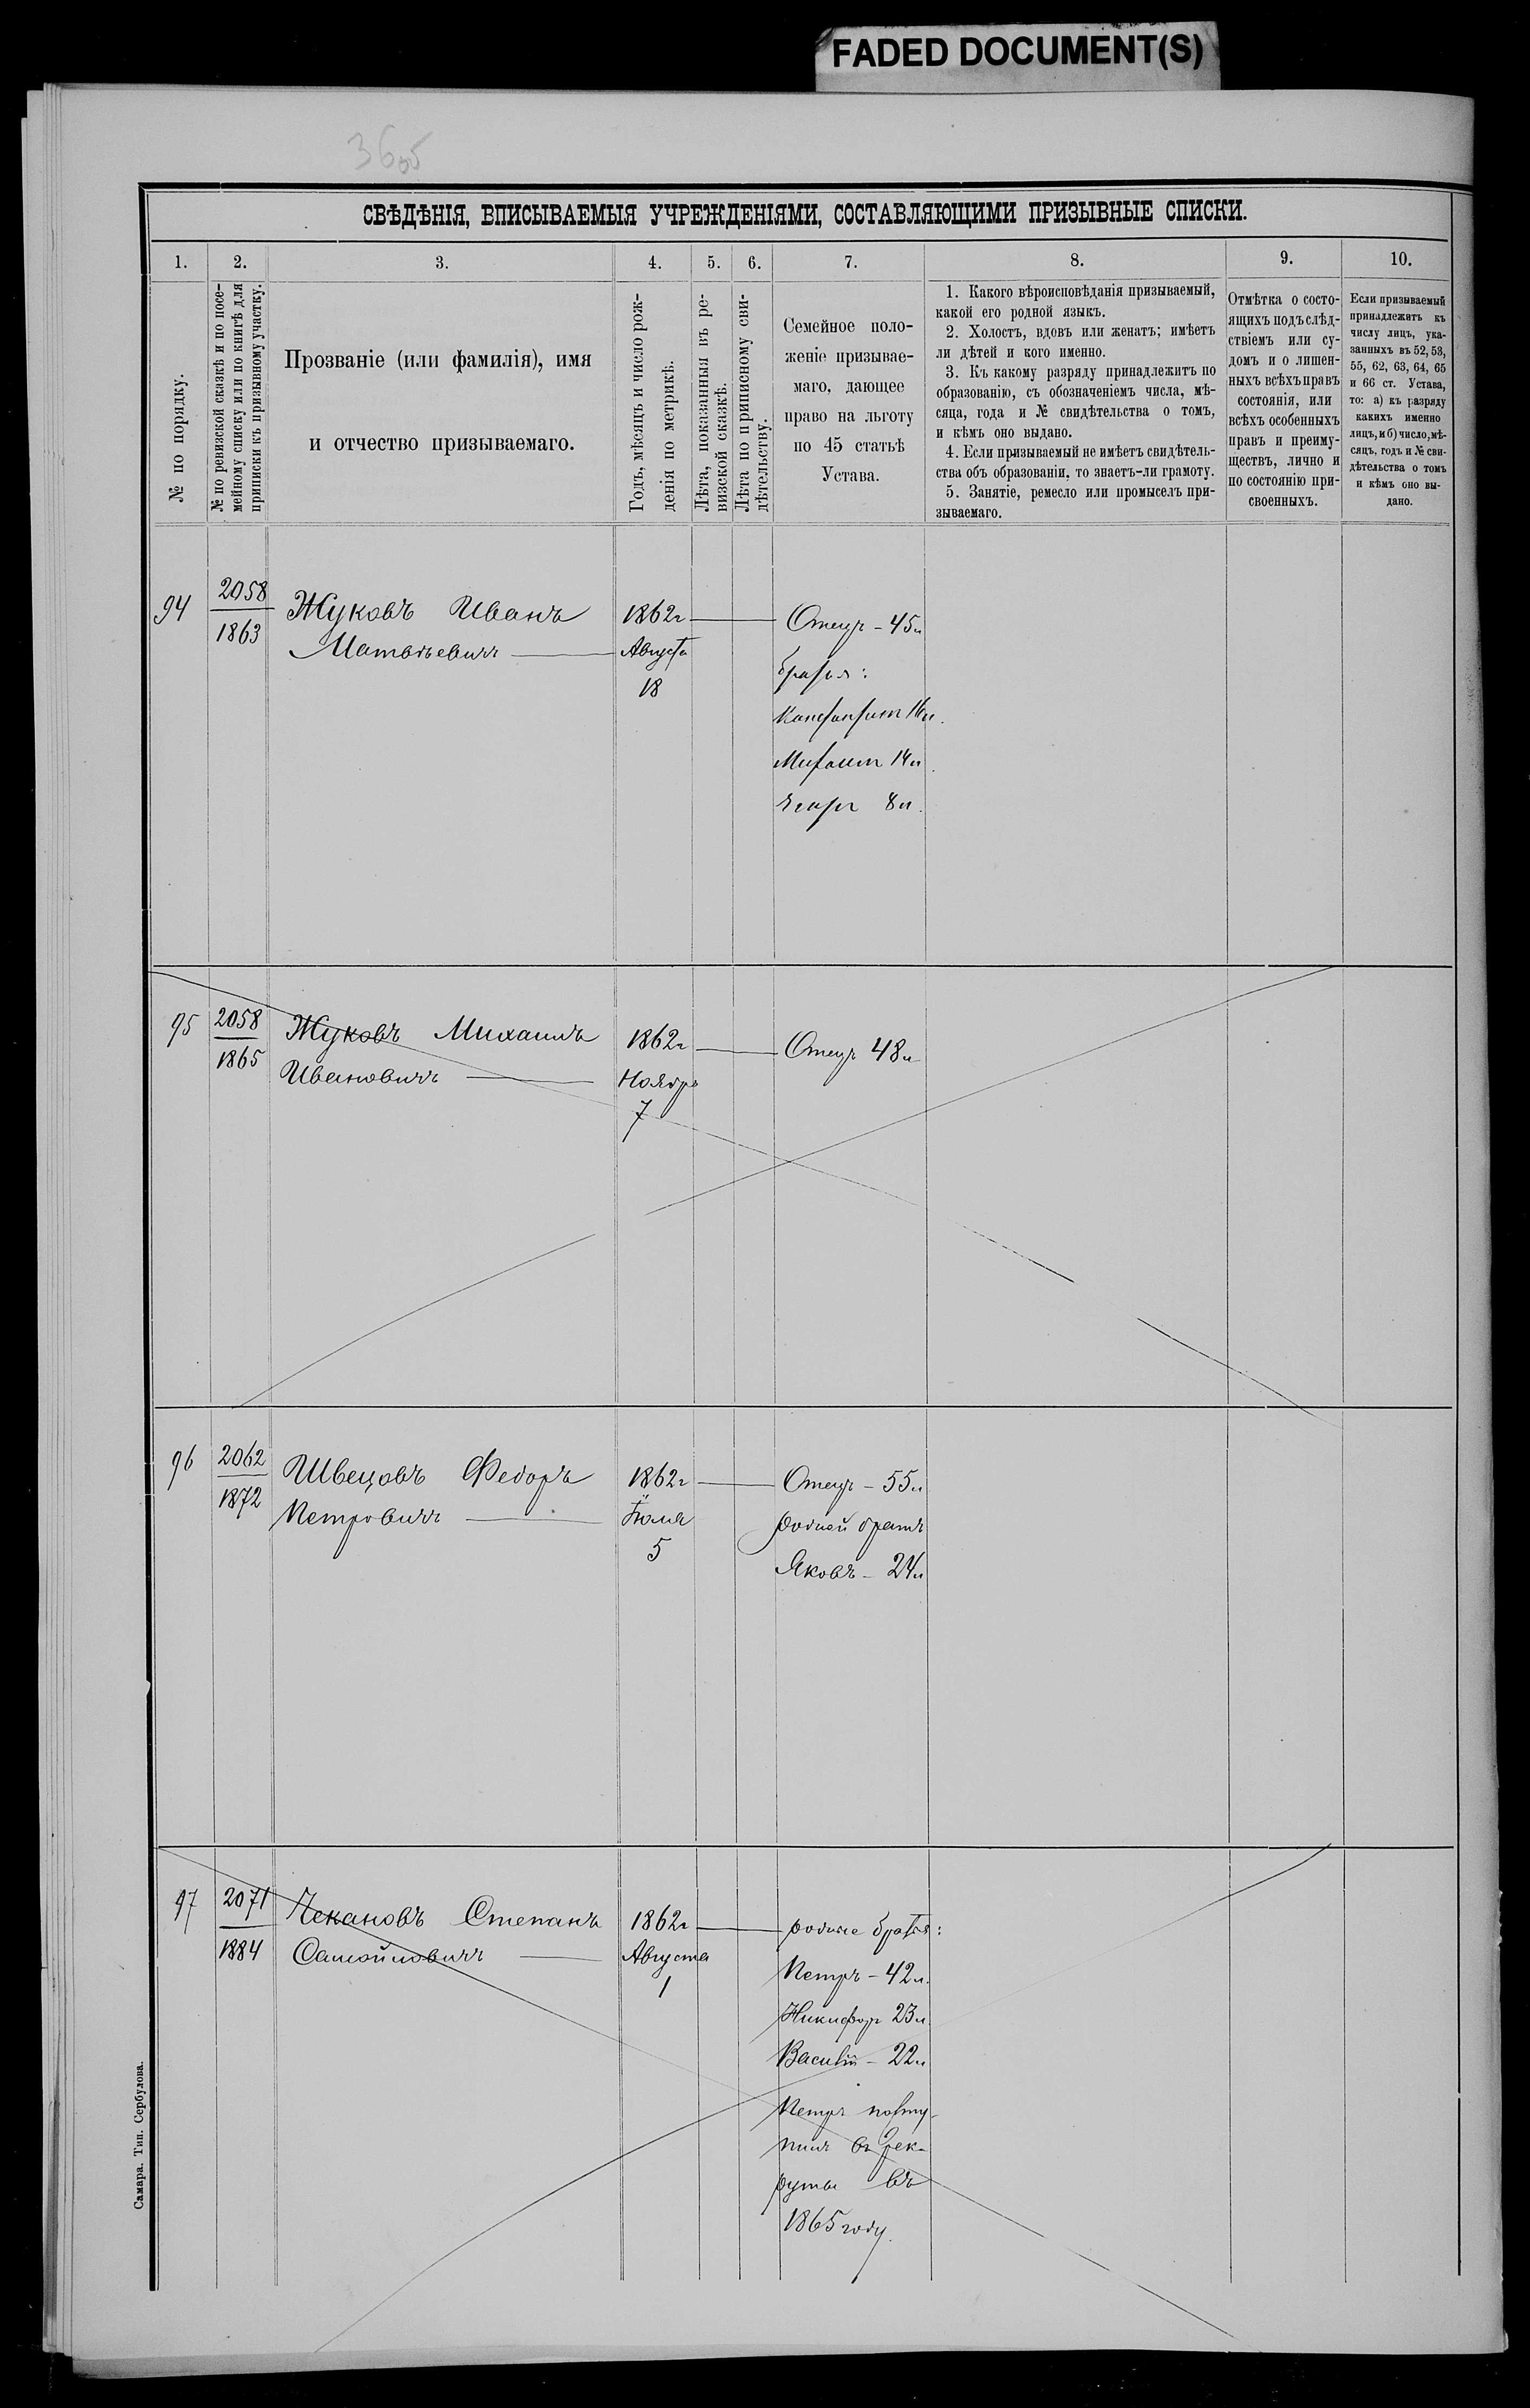 FADED DOCUMENT(S)
СВѢДѢНІЯ, ВПИСЫВАЕМЫЯ УЧРЕЖДЕНІЯМИ, СОСТАВЛЯЮЩИМИ ПРИЗЫВНЫЕ СПИСКИ.
1. 2. 3. 4. 5. 6. 7. 8. 9. 10.
№ по порядку.
№ по ревизской сказкѣ и по посе-
мейному списку или по книгѣ для
приписки къ призывному участку.
Прозваніе (или фамилія), имя
и отчество призываемаго.
Годъ, мѣсяцъ и число рож-
денія по метрикѣ.
Лѣта, показанныя въ ре-
визской сказкѣ.
Лѣта по приписному сви-
дѣтельству.
Семейное поло-
женіе призывае-
маго, дающее
право на льготу
по 45 статьѣ
Устава.
1. Какого вѣроисповѣданія призываемый,
какой его родной языкъ.
2. Холостъ, вдовъ или женатъ; имѣетъ
ли дѣтей и кого именно.
3. Къ какому разряду принадлежитъ по
образованію, съ обозначеніемъ числа, мѣ-
сяца, года и № свидѣтельства о томъ,
и кѣмъ оно выдано.
4. Если призываемый не имѣетъ свидѣтель-
ства объ образованіи, то знаетъ-ли грамоту.
5. Занятіе, ремесло или промыселъ при-
зываемаго.
Отмѣтка о состо-
ящихъ подъ слѣд-
ствіемъ или су-
домъ и о лишен-
ныхъ всѣхъ правъ
состоянія, или
всѣхъ особенныхъ
правъ и преиму-
ществъ, лично и
по состоянію при-
своенныхъ.
Если призываемый
принадлежитъ къ
числу лицъ, ука-
занныхъ въ 52, 53,
55, 62, 63, 64, 65
и 66 ст. Устава,
то: а) къ разряду
какихъ именно
лицъ, и б) число, мѣ-
сяцъ, годъ и № сви-
дѣтельства о томъ
и кѣмъ оно вы-
дано.
94 2058 Жуковъ Иванъ 1862г Отецъ - 45л
1863 Матвѣевичъ Августа братья:
18 Константинъ 16л.
Михаилъ 14л.
8л.
95 2058 Жуковъ Михаилъ 1862г Отецъ 48л
1865 Ивановичъ Ноября
7
96 2062 Швецовъ Федоръ 1862г Отецъ - 55л
1872 Петровичъ Іюля родной братъ
5 Яковъ - 24л
97 2071 Чекановъ Степанъ 1862г родные братья:
1884 Самойловичъ Августа Петръ - 42л.
1 Никифоръ 23л
Василій - 22л
Петръ посту-
пилъ въ рек-
руты въ
1865 году.
Самара. Тип. Сербулова.